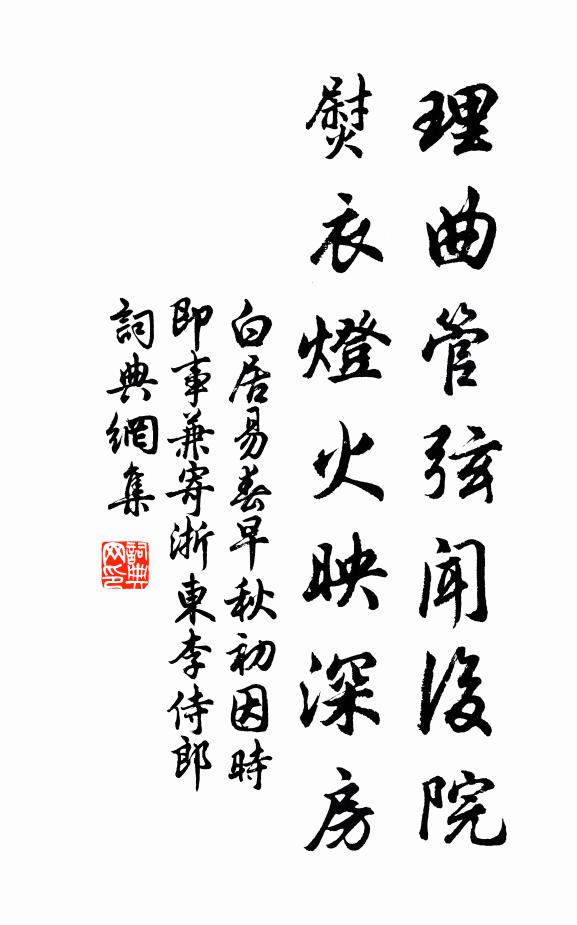 理曲管弦聞後院
熨衣燈火映深房
白居易春早秋初因時
即事兼寄浙東李侍郎
詞典網集
詞典网印